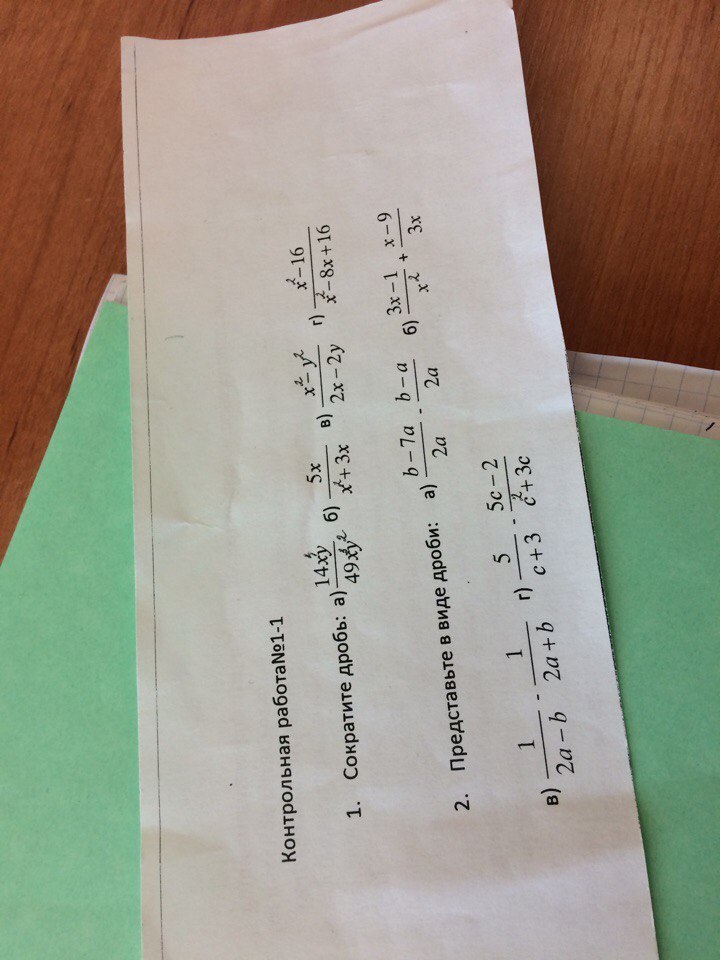 Контрольная работа№1-1
1. Сократите дробь: а) \frac{14x^4y}{49x^3y^2} б) \frac{5x}{x^2+3x} в) \frac{x^2-y^2}{2x-2y} г) \frac{x^2-16}{x^2-8x+16}
2. Представьте в виде дроби: а) \frac{b-7a}{2a} - \frac{b-a}{2a} б) \frac{3x-1}{x^2} + \frac{x-9}{3x}
в) \frac{1}{2a-b} - \frac{1}{2a+b} г) \frac{5}{c+3} - \frac{5c-2}{c^2+3c}